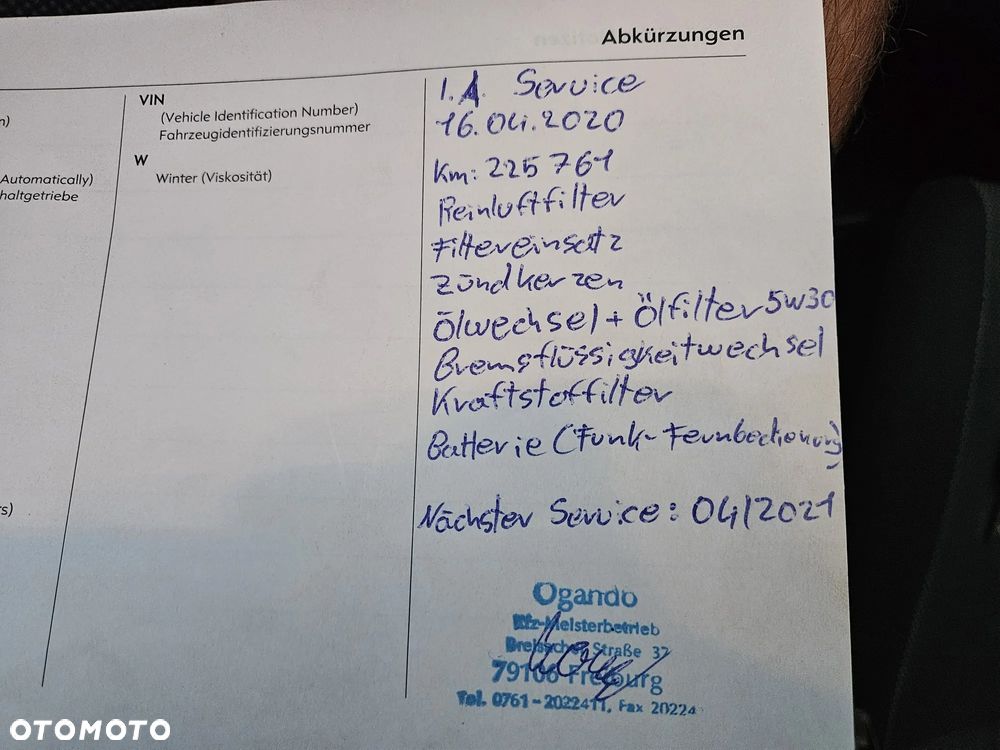 Abkürzungen
n)
Automatically)
haltgetriebe
rs)
VIN
(Vehicle Identification Number)
Fahrzeugidentifizierungsnummer
W
Winter (Viskosität)
I.A. Service
16.04.2020
Km: 225 761
Reinluftfilter
Filtereinsatz
Zündkerzen
Ölwechsel + Ölfilter 5w30
Bremsflüssigkeitwechsel
Kraftstoffilter
Batterie (Funk-Fernbedienung)
Nächster Service: 04/2021
Ogando
Kfz-Meisterbetrieb
Straße 37
79106 Freiburg
Tel. 0761-2022411, Fax 20224
OTOMOTO